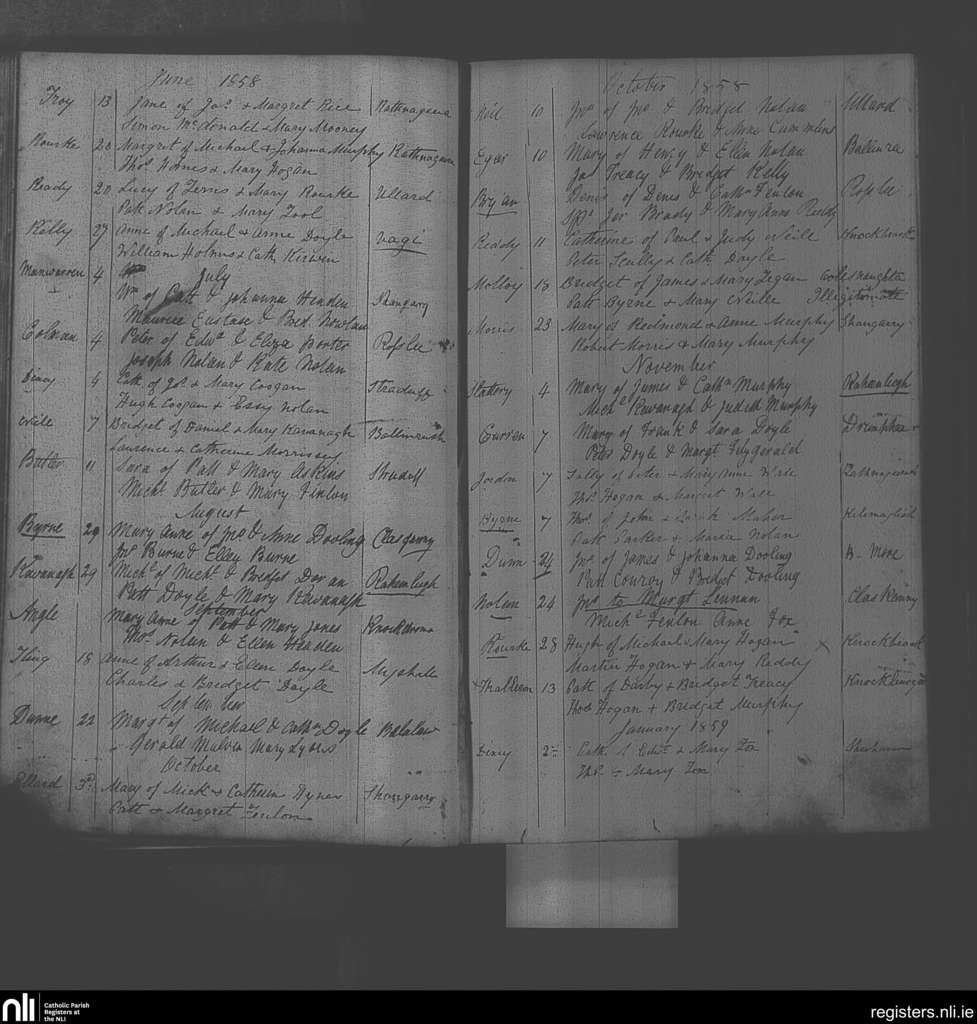 June 1858
Troy 13 Jane of Jas. & Margret Rice Rathnageera
Simon McDonald & Mary Mooney
Rourke 20 Margret of Michael & Johanna Murphy Rathnageera
Thos. Holmes & Mary Hogan
Ready 20 Lucy of & Mary Rourke Ullard
Patk Nolan & Mary Tool
Kelly 27 Anne of Michael & Anne Doyle
William Holmes & Cath Kirwin
July
4 Wm of Patt & Johanna Headen Shangarry
Maurice Eustace & Bret Nowlan
Colman 4 Peter of Edwd & Eliza Porter Rosslee
Joseph Nolan & Kate Nolan
4 Cath. of Jos. & Mary Coogan
Hugh Coogan & Essy Nolan
Neile 7 Bridget of Daniel & Mary Kavanagh
Laurence & Catherine Morrissey
Butler 11 Sara of Patt & Mary Askins
Michl. Butler & Mary Finlon
August
Byrne 29 Mary Anne of Jno & Anne Dooling Clasgarry
Jno. Burne & Ellen Burne
Kavanagh 29 Michl of Michl & Bredget Doran Rahenleegh
Patt Doyle & Mary Kavanagh
September
Angle Mary Anne of Patt & Mary Jones
Thos. Nolan & Ellen Headen
18 Anne of Arthur & Ellen Doyle Myshill
Charles & Bridget Doyle
September
Dunne 22 Margt of Michael & Cathn Doyle
Gerald Mary Lyons
October
3rd Mary of Mick & Catheren Hynes Shangarry
Patk & Margret Fenlon
October 1858
Neil 10 Jno. of Jno. & Bridget Nolan Ullard
Lawrence Rourke & Anne Cummins
Egar 10 Mary of Henry & Ellen Nolan
Jas Treacy & Bridget Kelly
Bryan Denis of Denis & Cathn Fenlon Rosslee
for Brady & Mary Anne Reddy
Reddy 11 Catherine of Paul & Judy Neile
Peter Scully & Cath Doyle
Molloy 18 Bridget of James & Mary Regan
Patt Byrne & Mary Neile Illegitimate
Morris 23 Mary of Redmond & Anne Murphy Shangarry
Robert Morris & Mary Murphy
November
Slattery 4 Mary of James & Cathn Murphy Rahenleegh
Michl Kavanagh & Judith Murphy
Curren 7 Mary of Frank & Sara Doyle
Peter Doyle & Margt Fitzgerald
Jordan 7 of Peter & Mary Anne Wall
Thos. Hogan & Margret Wall
Byrne 7 Thos. of John & Maher
Patk Parker & Maria Nolan
Dunn 24 Jno. of James & Johanna Dooling B-more
Patt Conroy & Bridget Dooling
Nolan 24 Jno. to Margt Lennan
Michl Fenlon Anne Fox
Rourke 28 Hugh of Michael & Mary Hogan
Martin Hogan & Mary Reddy
13 Patk of Darby & Bridget Treacy
Thos Hogan & Bridget Murphy
January 1859
2nd Cath. of Edwd. & Mary Fox
Thos. & Mary Fox
nli Catholic Parish
Registers at
the NLI
registers.nli.ie